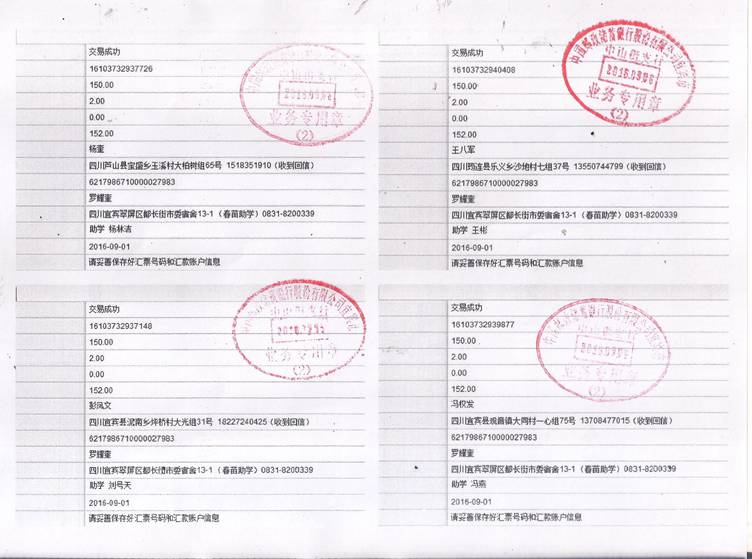 交易成功
16103732937726
150.00
2.00
0.00
152.00
杨奎
四川芦山县宝盛乡玉溪村大柏树组65号 1518351910（收到回信）
6217986710000027983
罗耀奎
四川宜宾翠屏区都长街市委宿舍13-1（春苗助学）0831-8200339
助学 杨林洁
2016-09-01
请妥善保存好汇票号码和汇款账户信息
中山街支行
2016.09.06
业务专用章
(2)
交易成功
16103732940408
150.00
2.00
0.00
152.00
王八军
四川筠连县乐义乡沙地村七组37号 13550744799（收到回信）
6217986710000027983
罗耀奎
四川宜宾翠屏区都长街市委宿舍13-1（春苗助学）0831-8200339
助学 王彬
2016-09-01
请妥善保存好汇票号码和汇款账户信息
中国邮政储蓄银行股份有限公司宜宾市
中山街支行
2016.09.06
业务专用章
(2)
交易成功
16103732937148
150.00
2.00
0.00
152.00
彭凤文
四川宜宾县泥南乡坪桥村大光组31号 18227240425（收到回信）
6217986710000027983
罗耀奎
四川宜宾翠屏区都长街市委宿舍13-1（春苗助学）0831-8200339
助学 刘号天
2016-09-01
请妥善保存好汇票号码和汇款账户信息
中山街支行
业务专用章
(2)
交易成功
16103732939877
150.00
2.00
0.00
152.00
冯权发
四川宜宾县观音镇大同村一心组75号 13708477015（收到回信）
6217986710000027983
罗耀奎
四川宜宾翠屏区都长街市委宿舍13-1（春苗助学）0831-8200339
助学 冯燕
2016-09-01
请妥善保存好汇票号码和汇款账户信息
中山街支行
2016.09.06
业务专用章
(2)